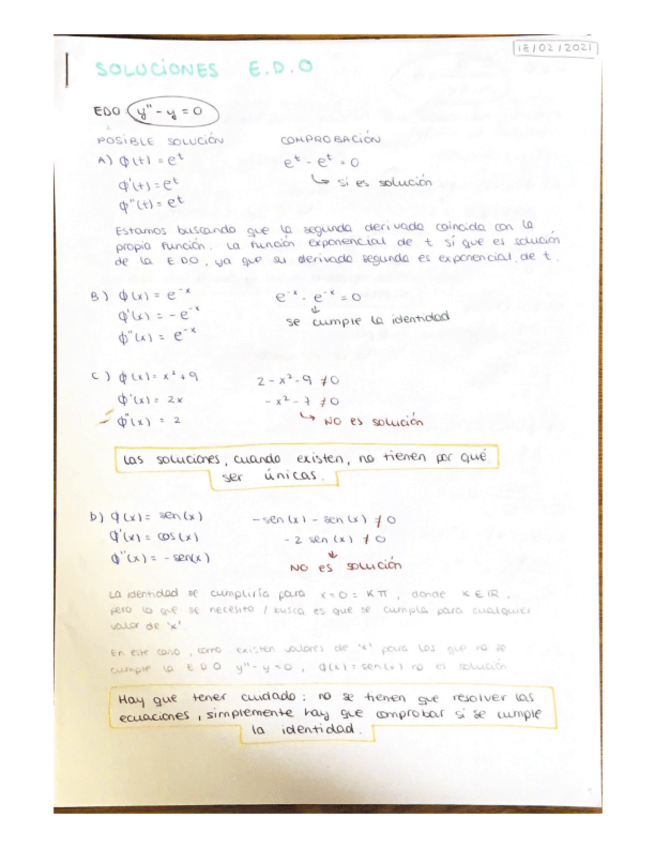 18/02/2021
SOLUCIONES E.D.O
EDO y'' - y = 0
POSIBLE SOLUCIÓN COMPROBACIÓN
A) φ(t) = e^t e^t - e^t = 0
φ'(t) = e^t ↳ sí es solución
φ''(t) = e^t
Estamos buscando que la segunda derivada coincida con la
propia función. La función exponencial de t sí que es solución
de la E.DO, ya que su derivada segunda es exponencial de t.
B) φ(x) = e^-x e^-x - e^-x = 0
φ'(x) = -e^-x ↓
φ''(x) = e^-x se cumple la identidad
C) φ(x) = x² + 9 2 - x² - 9 ≠ 0
φ'(x) = 2x - x² - 7 ≠ 0
φ''(x) = 2 ↳ NO es solución
Las soluciones, cuando existen, no tienen por qué
ser únicas.
D) φ(x) = sen(x) -sen(x) - sen(x) ≠ 0
φ'(x) = cos(x) - 2 sen(x) ≠ 0
φ''(x) = -sen(x) ↓
NO es solución
La identidad se cumpliría para x = 0 = Kπ, donde K ∈ ℝ,
pero lo que se necesita / busca es que se cumpla para cualquier
valor de 'x'.
En este caso, como existen valores de 'x' para los que no se
cumple la E DO y'' - y = 0, φ(x) = sen(x) no es solución
Hay que tener cuidado: no se tienen que resolver las
ecuaciones, simplemente hay que comprobar si se cumple
la identidad.